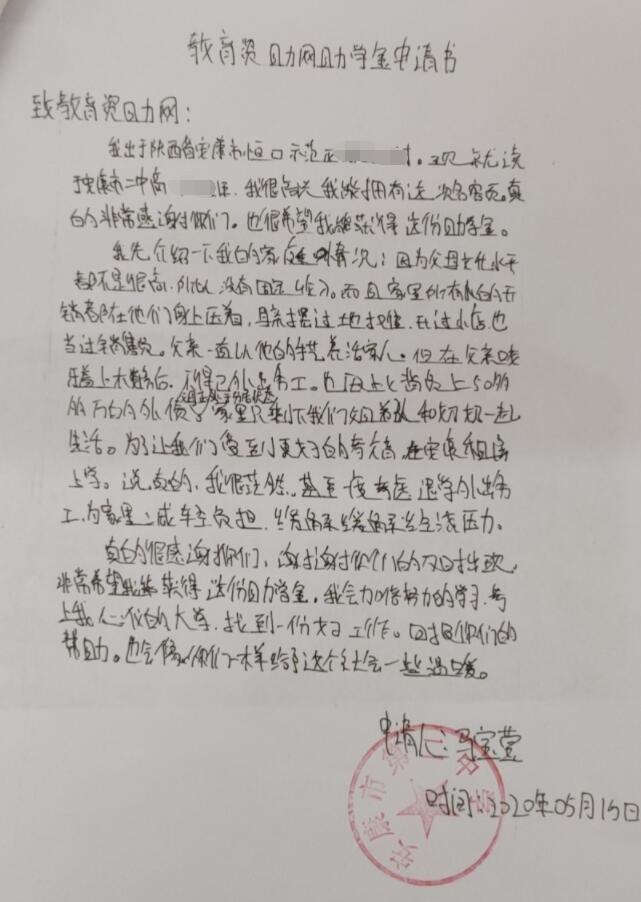 教育资助网助学金申请书
致教育资助网：
我出于陕西省安康市恒口示范区 村。现就读
于安康市二中高 ，我很高兴我能拥有这次名额，真
的非常感谢你们。也很希望我能获得这份助学金。
我先介绍一下我的家庭情况：因为父母文化水平
都不是很高，所以没有固定收入。而且家里所有的开
销都压在他们身上压着，母亲摆过地摊，开过小店，也
当过销售员。父亲一直以他的手艺养活家人。但在父亲
做手术后，不得已外出务工。也因上
的外债，父母处于分居状态，家里只剩下我们姐弟和奶奶一起
生活。为了让我们受到更好的教育，在安康租房
上学。说真的，我很茫然，甚至一度考虑退学外出务
工，为家里减轻负担，缓解经济压力。
真的很感谢你们，谢谢你们的
非常希望我能获得这份助学金，我会加倍努力的学习，考
上我心仪的大学，找到一份好工作。回报你们的
帮助。也会像你们一样给予这个社会一些温暖。
申请人：马宝莹
时间：2020年05月15日
安康市第二中学